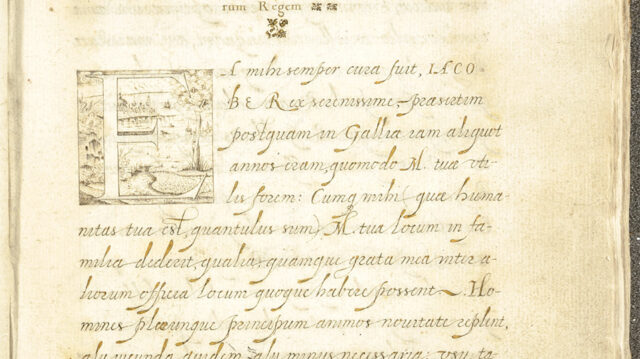 rum Regem
EA mihi semper cura fuit, IACO
BE Rex serenissime, præsertim
postquam in Gallia iam aliquot
annos eram, quomodo M. tuæ uti
lis forem: Cumq mihi, quæ huma
nitas tua est, quantulus sum, M. tua locum in fa
milia dederit, qualia, quamque grata mea inter a
liorum officia locum quoque habere possent. Ho
mines plerunque principum animos novitate replent,
alij iucunda quidem, alij minus necessaria: usu